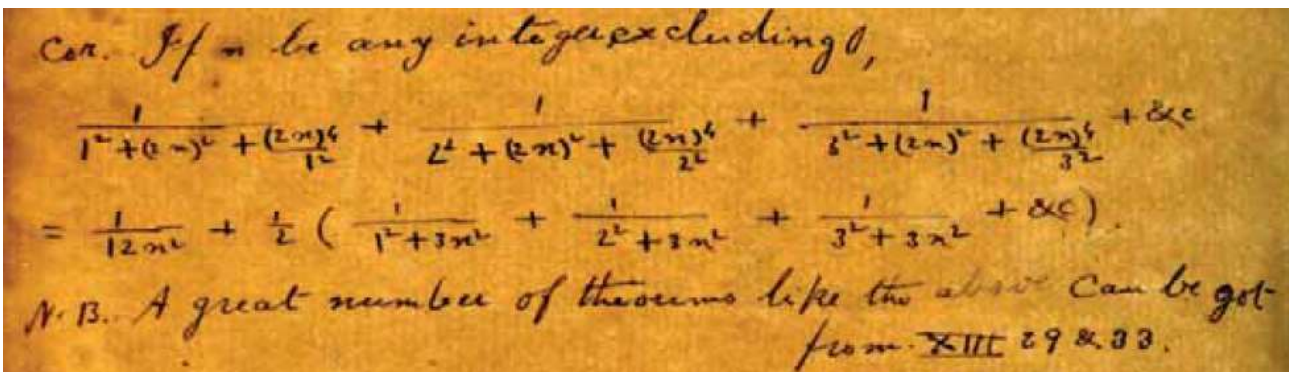 Cor. If n be any integer excluding 0,
1/(1² + (2n)² + (2n)⁴/1²) + 1/(2² + (2n)² + (2n)⁴/2²) + 1/(3² + (2n)² + (2n)⁴/3²) + &c
= 1/(12n²) + 1/2 ( 1/(1² + 3n²) + 1/(2² + 3n²) + 1/(3² + 3n²) + &c ).
N.B. A great number of theorems like the above can be got
from XIII 29 & 33.